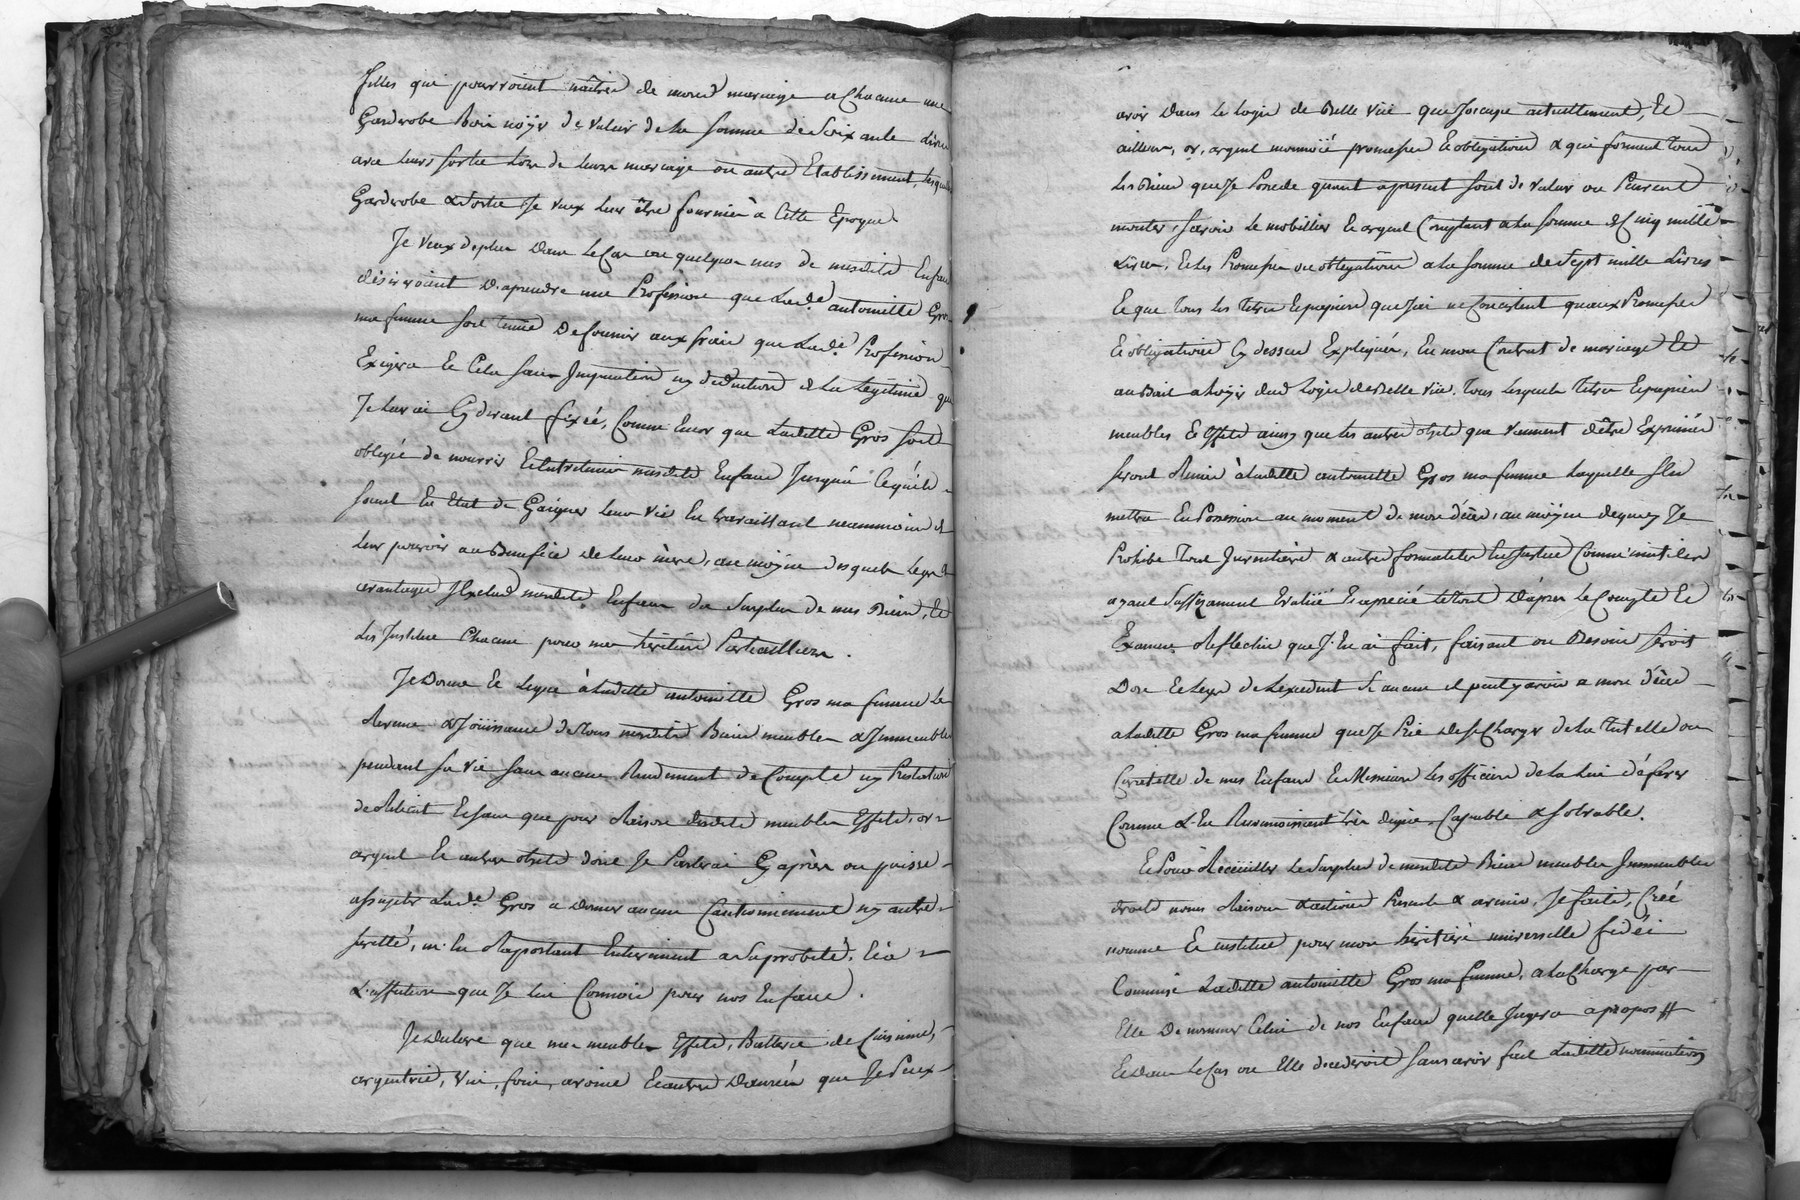 filles qui pourroient naître de mond mariage a Chacune une
Gardrobe Bois noÿer de valeur de la somme de soixante livres
avec leurs sortie lors de leurs mariage ou autre Etablissement, lesquels
Gardrobe & sortie Je veux leur être fournies à Cette Epoque.
Je veux deplus dans le Cas ou quelqun uns de mesdits Enfans
désireroient d'aprendre une Profession que lade. antoinette Gros
ma femme soit tenue de fournir aux frais que lade. Profession
Exigera Et Cela sans Imputation ny deduction de la Legitime que
Je leur ai Cy devant fixéé, Comme Encor que Ladette Gros soit
obligée de nourrir Et Entretenir mesdits Enfans Jusqu'a Cequ'ils
soient En Etat de Gaigner leur vie En travaillant neanmoins de
leur pouvoir au Benefice de leur mère, au moÿen desquels Legs &
avantages J'Exclud mesdits Enfans du Surplus de mes Biens, Et
Les Institue Chacun pour mes heritiers Particulliers.
Je Donne Et Legue à Ladette antoinette Gros ma femme les
Revenus & Joüissance de tous mesdits Biens meubles & Immeubles
pendant sa vie sans aucun Rendement de Compte ny Prestation
de Reliquat Et sans que pour Raison desdits meubles Effets, or
argent Et autres objets dont Je Parlerai Cy après on puisse
assujetir lade. Gros a donner aucun Cautionnement ny autre
sureté, m'En Raportant Entierement a sa probité, Et a
L'affection que Je lui Connois pour nos Enfans.
Je Declare que mes meubles Effets, Batterie de Cuisinne,
argentrie, vin, foin, avoine Et autres Danrées que Je Peux
avoir Dans le logis de Belle vüe que J'ocupe actuellement, Et
ailleurs, or, argent monnoié promesses Et obligations & qui forment tous
les Biens que Je Possede quant apresent sont de valeur ou Peuvent
monter, scavoir Le mobillier Et argent Comptant a la somme de Cinq mille
Livres, Et les Promesses ou obligations a la somme de Sept mille Livres
Et que tous les titres Et papiers que J'ai ne Consistent qu'aux Promesses
Et obligations Cy dessus Expliqués, En mon Contrat de mariage Et
au Bail a loÿer dud. logis de Belle vüe. tous lesquels titres Et papiers
meubles Et Effets ainsy que les autres objets que viennent d'être Exprimés
seront Remis à Ladette antoinette Gros ma femme laquelle s'En
mettra En Possession au moment de mon décès, au moÿen dequoy Je
Prohibe tous Inventaire & autres formalités En Justice Comme inutiles
ayant suffisament Evalüé Et aprecié le tout d'après Le Compte Et
Examen Reflechis que J'En ai fait, faisant ou Besoin seroit
Don Et Legs de L'excedent si aucun il peut y avoir a mon décès
a Ladette Gros ma femme que Je Prie de se Charger de la tutelle ou
Curatelle de mes Enfans Et Messieurs les officiers de la lui déferer
Comme L'En Reconnoissant très digne, Capable & solvable.
Et Pour Receüillir Le Surplus de mesdits Biens meubles Immeubles
droits noms Raisons & actions Presents & avenir, Je fais, Créé
nomme Et institue pour mon heritiere universelle fidéi
Commise Ladette antoinette Gros ma femme, a la Charge par
Elle De nommer Celui de nos Enfans quelle Jugera apropos #
Et Dans Le Cas ou Elle decederoit sans avoir fait Ladette nomination